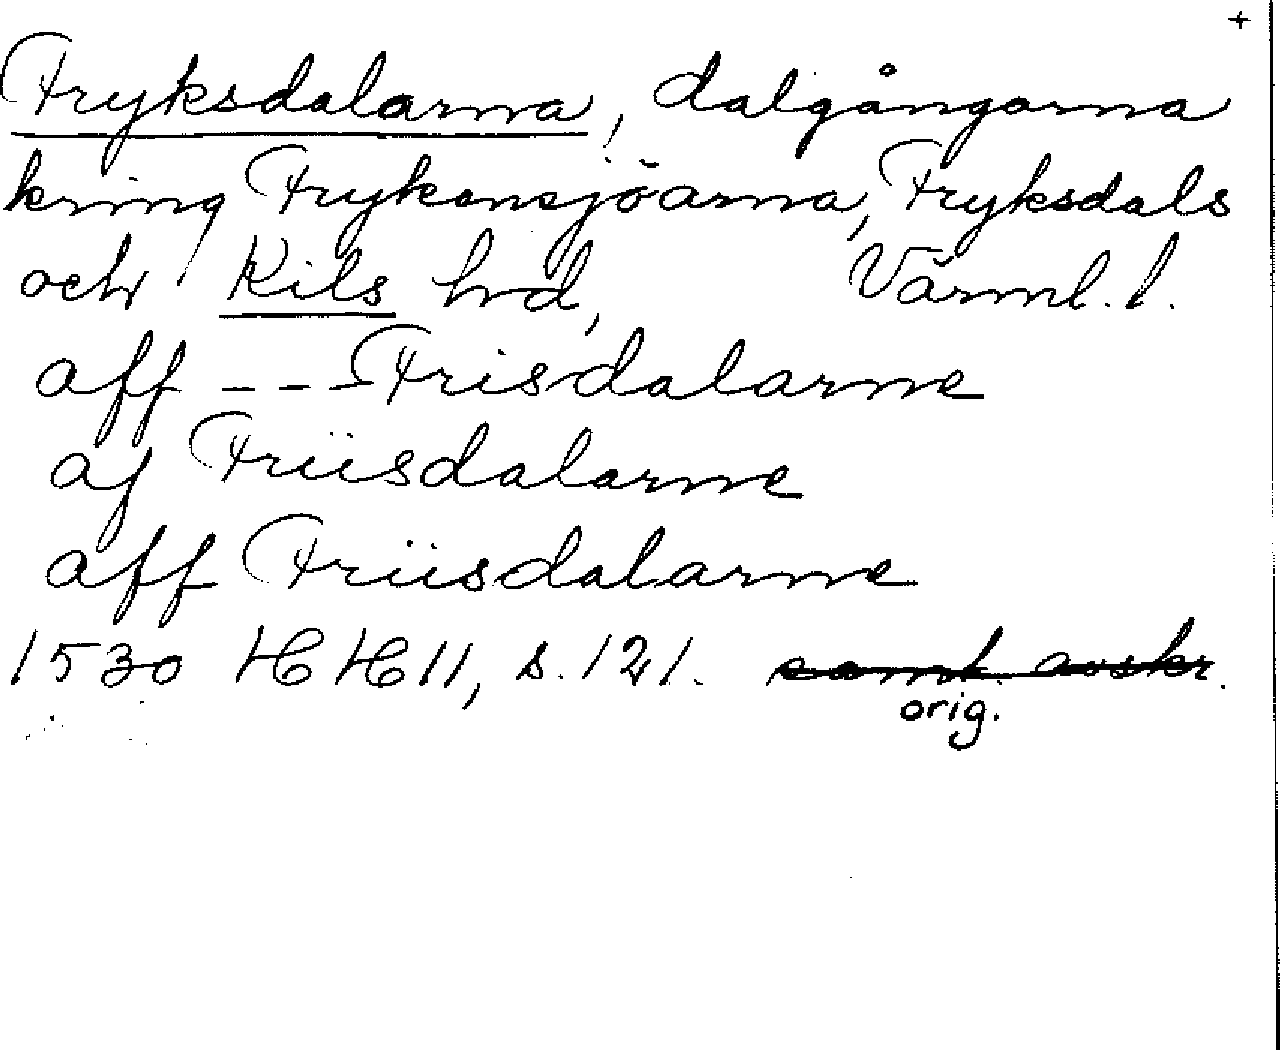 +
Fryksdalarna, dalgångarna
kring Frykensjöarna, Fryksdals
och Kils hrd, Värml. l.
aff - - - Frisdalarne
af Friisdalarne
aff Friisdalarne
1530 HH 11, s. 121. samt. avskr.
orig.